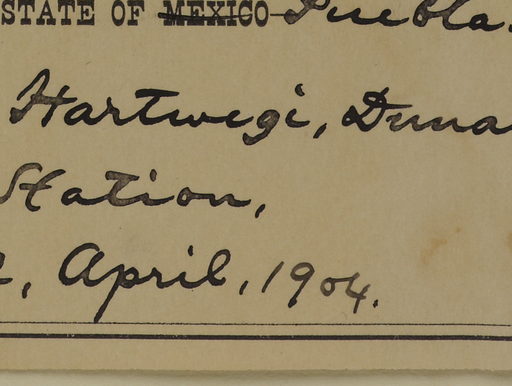 STATE OF MEXICO Puebla.
Hartwegi, Duna
Station,
, April, 1904.